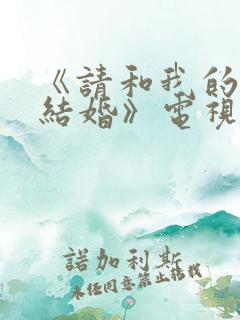 《請和我的
結婚》電視
諾加利斯
未任同意禁止轉載